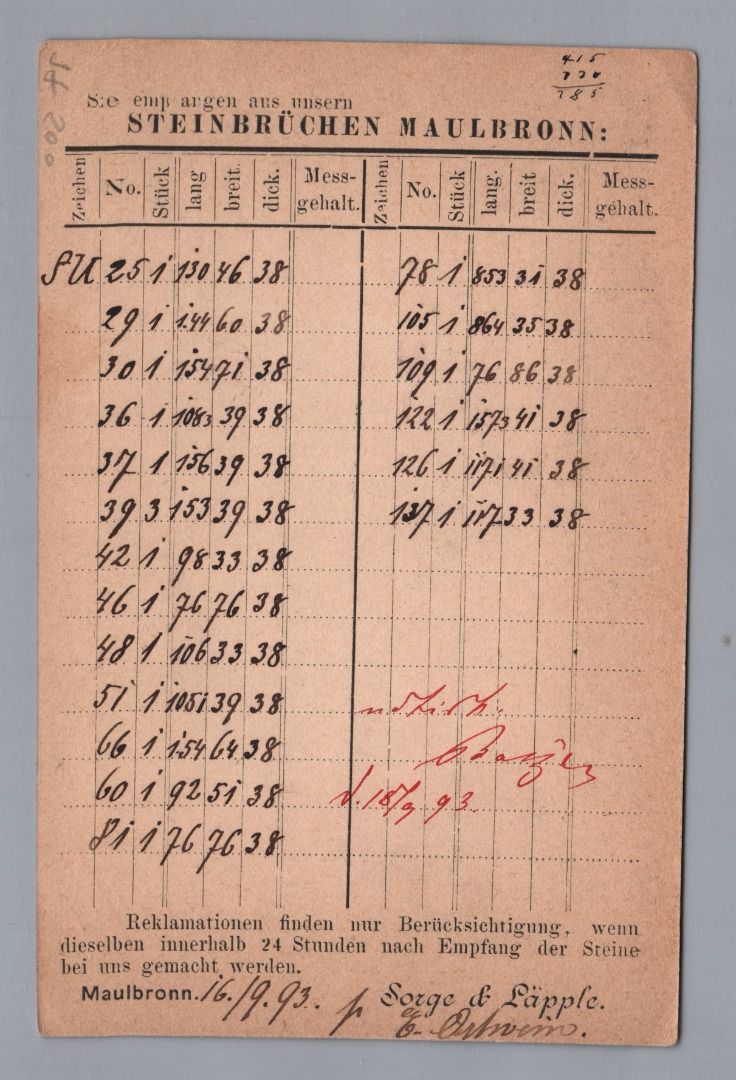 415
285
Sie empfangen aus unsern
STEINBRÜCHEN MAULBRONN:
Zeichen No. Stück lang breit. dick. Mess-gehalt. Zeichen No. Stück lang. breit dick. Mess-gehalt.
SU 25 1 130 46 38 78 1 853 31 38
29 1 1.44 60 38 105 1 864 35 38
30 1 154 71 38 109 1 76 86 38
36 1 1083 39 38 122 1 1573 41 38
37 1 156 39 38 126 1 1171 41 38
39 3 153 39 38 137 1 117 33 38
42 1 98 33 38
46 1 76 76 38
48 1 106 33 38
51 1 1051 39 38
66 1 1.54 64 38
60 1 92 51 38
81 1 76 76 38
notirt.
d. 18/9 93
Reklamationen finden nur Berücksichtigung, wenn
dieselben innerhalb 24 Stunden nach Empfang der Steine
bei uns gemacht werden.
Maulbronn. 16./9.93. p Sorge & Läpple.